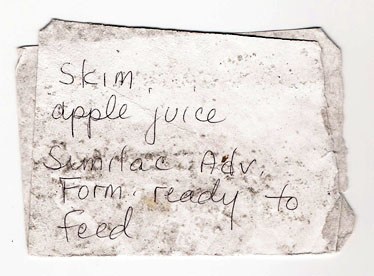 Skim
apple juice
Similac Adv.
Form. ready to
feed